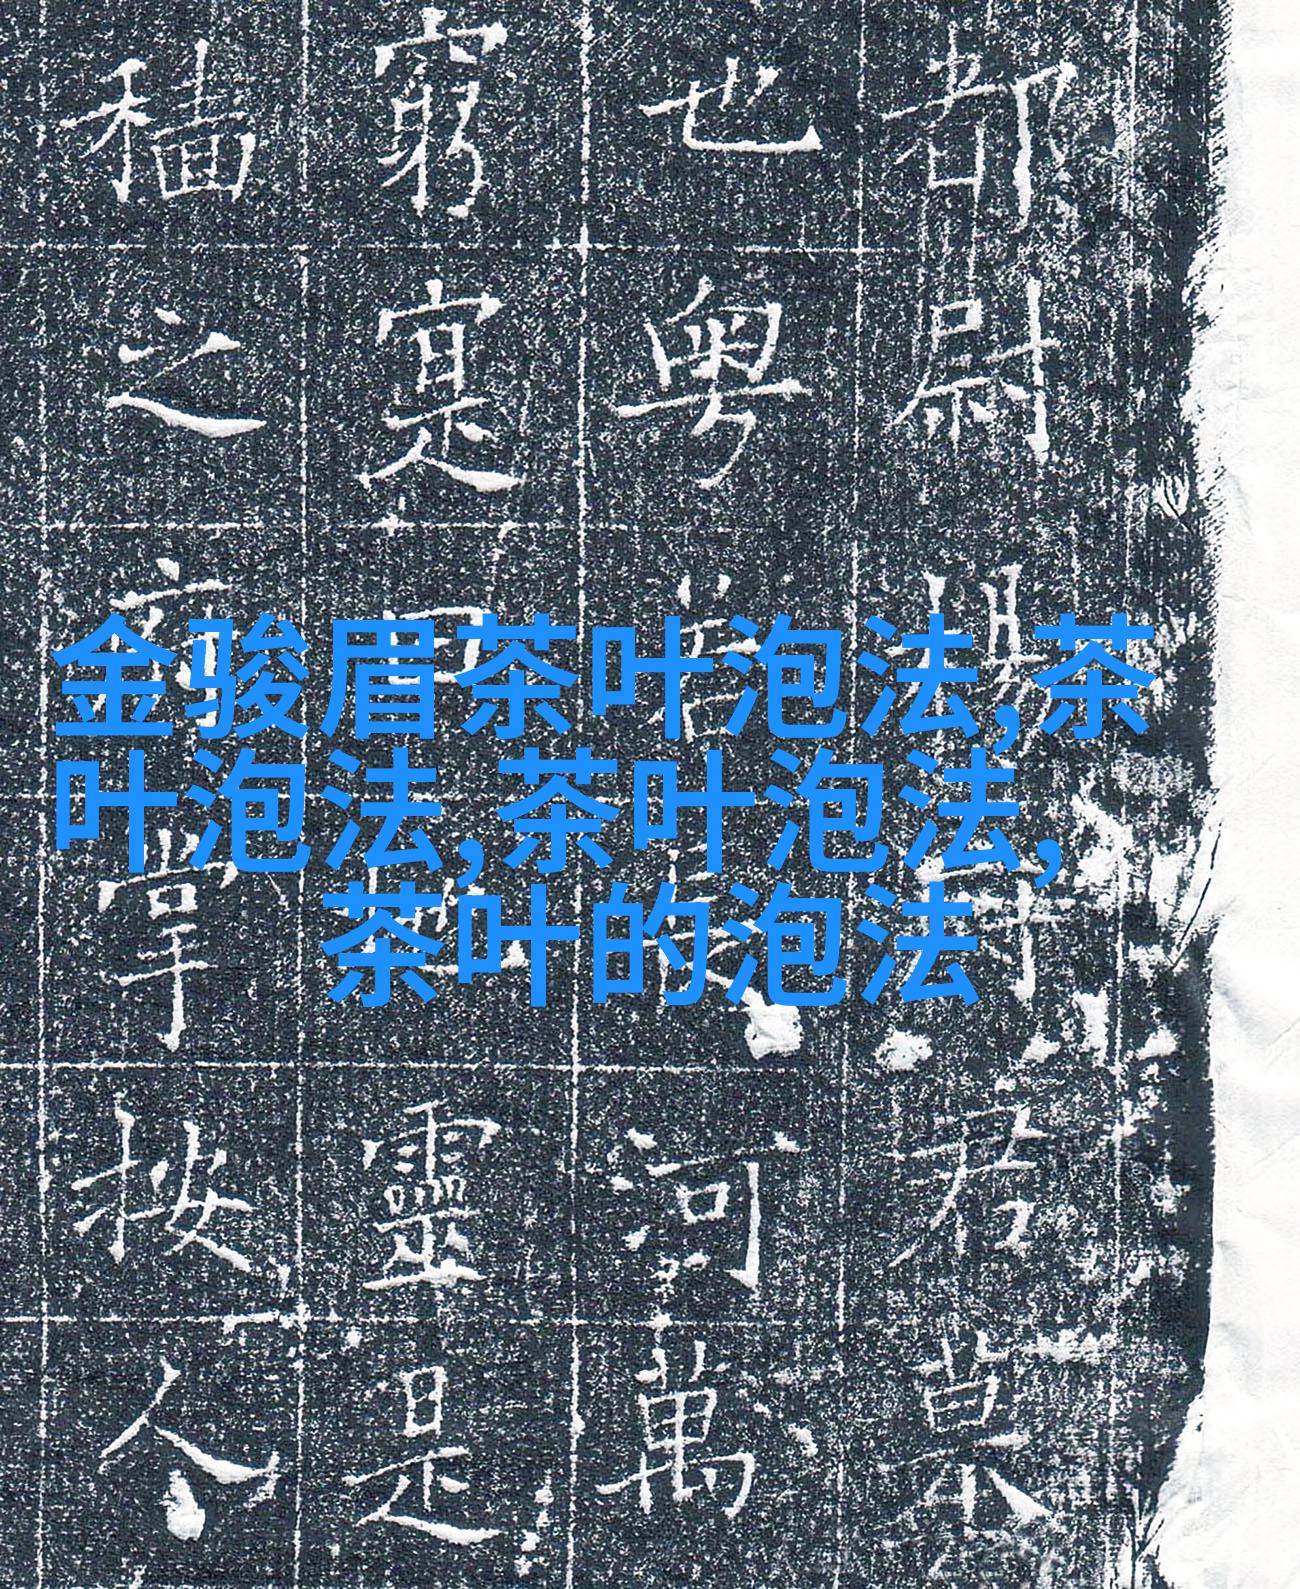 金骏眉茶叶泡法,茶
叶泡法,茶叶泡法,
茶叶的泡法
都尉君
也粤河萬
窮寔靈是
穡之掌按人